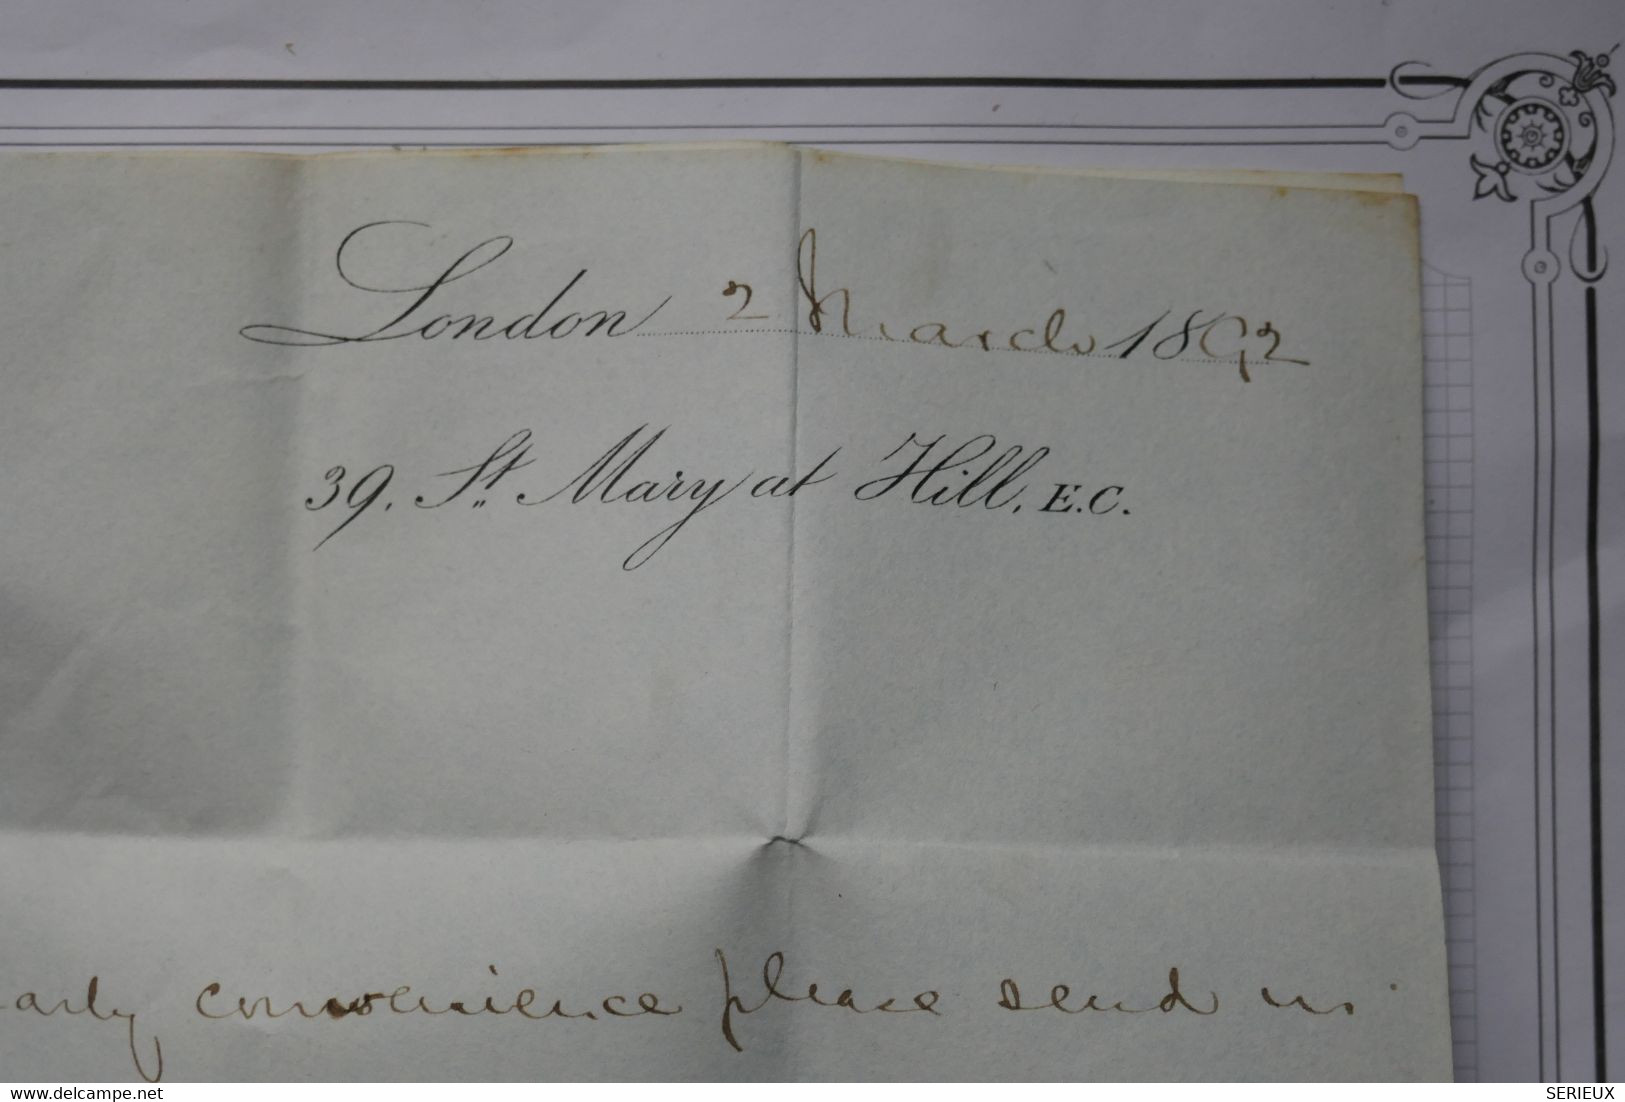 London 2 March 1892
39, St. Mary at Hill, E.C.
early convenience please send us
SERIEUX